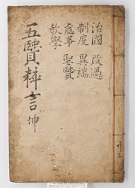 治國 改過
制度 異端
處事 聖賢
教學
五賢粹言 坤